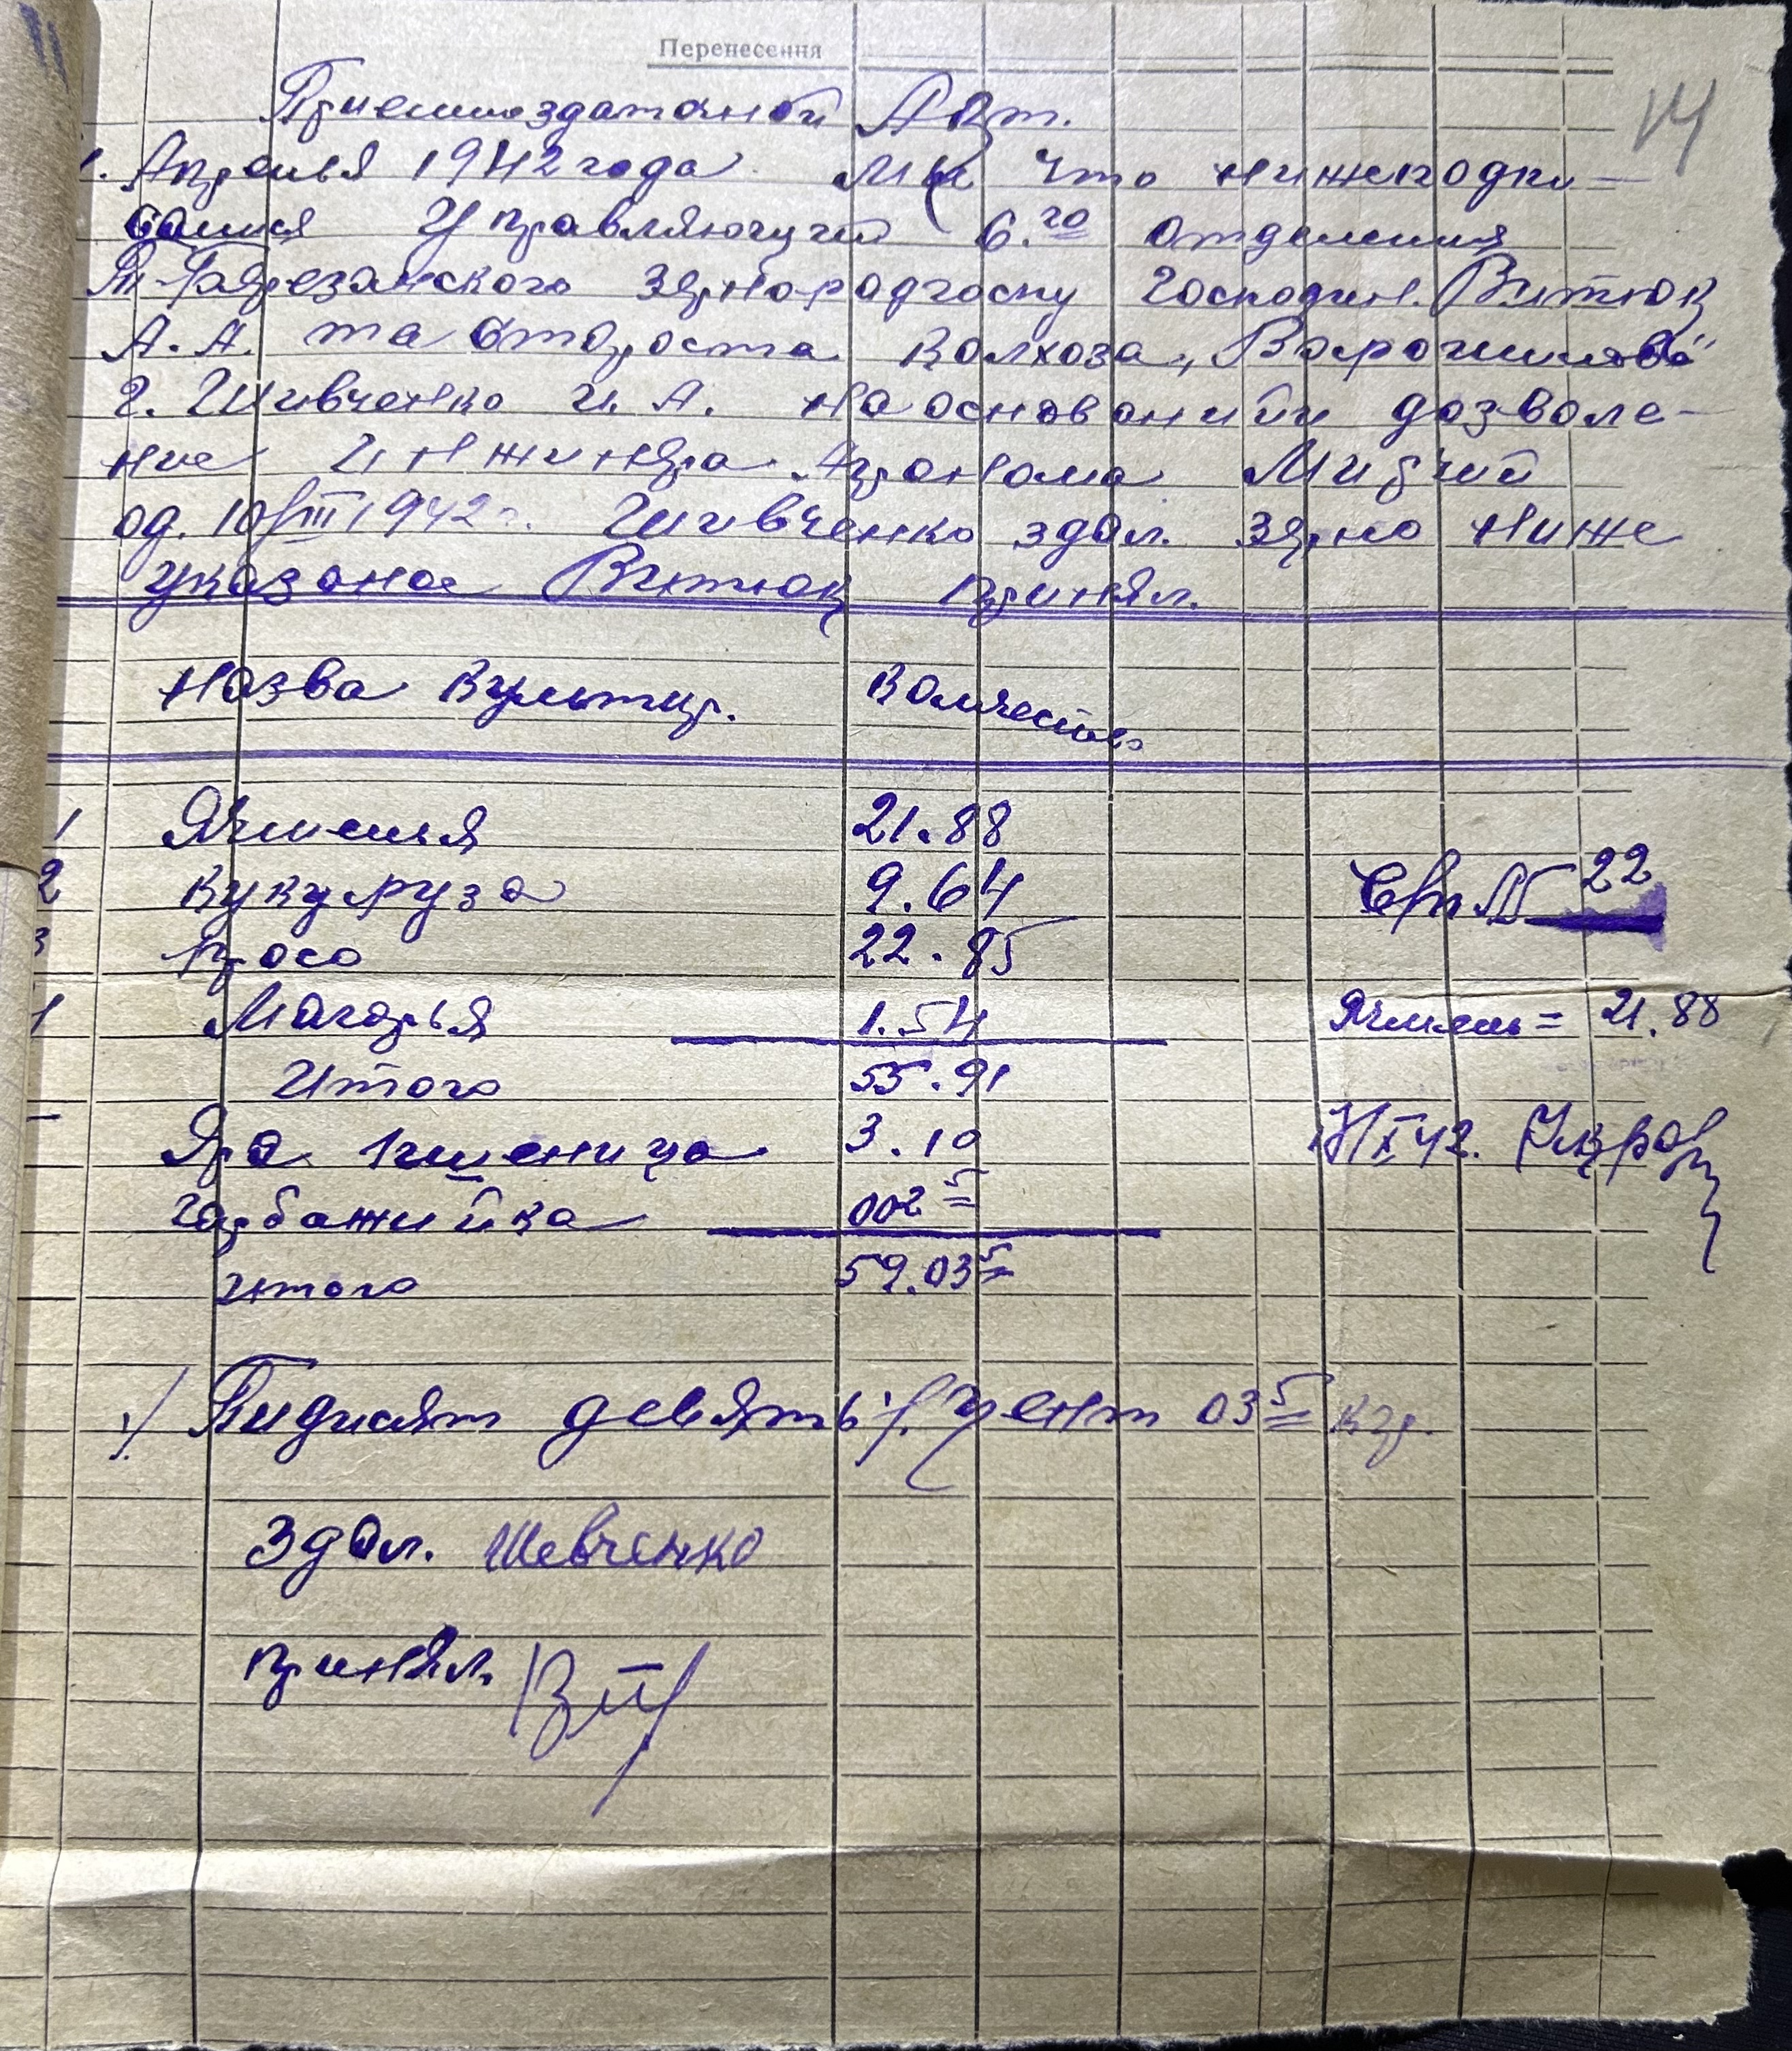 Перенесення
14
Приемноздаточной Акт.
1. Апрелья 1942 года Мы что нижеподпи-
савшися Управляючучий 6.го отделения
Т-Березанского Зернорадгоспу Господин. Витюк
А. А. та староста колхоза „Ворошилова"
г. Шивченко И. А. на основаниии дозволе-
ние Инжинера Агронома
од. 10/III 1942 г. Шивченко здал. Зерно ниже
указаное Витюк принял.
Назва культур. Количество
1 Ячменья 21.88
2 кукуруза 9.64
3 просо 22.85
4 Магарья 1.54
Итого 55.91
Яра пшеница 3.10
гарбажийка 002 5
итого 59.03 5
22
Ячмень = 21.88
Пидисят девять /. цент 03 5 кгр.
Здал. Шевченко
принял.